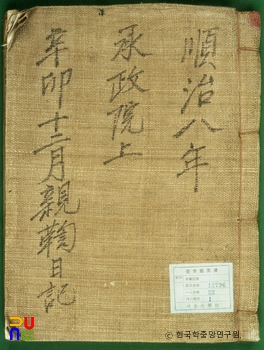 順治八年
承政院上
辛卯十二月親鞫日記
ⓒ 한국학중앙연구원